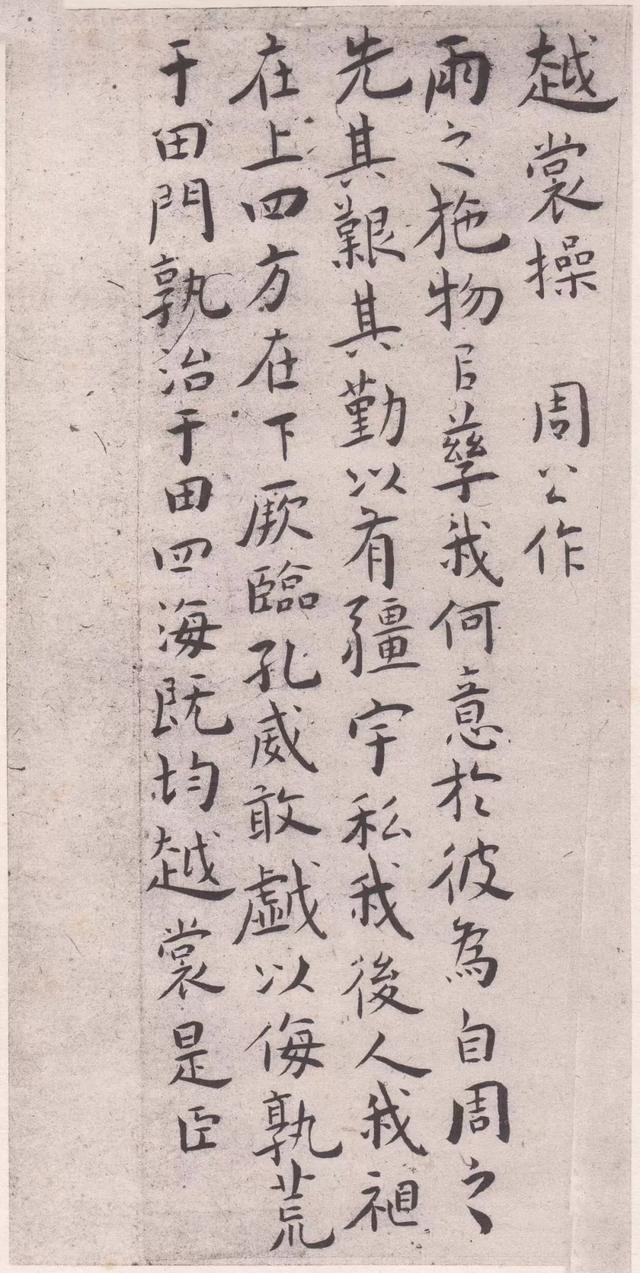 越裳操 周公作
雨之施物㠯孳我何意於彼為自周之
先其艱其勤以有疆宇私我後人我祖
在上四方在下厥臨孔威敢戲以侮孰荒
于田門孰治于田四海既均越裳是臣